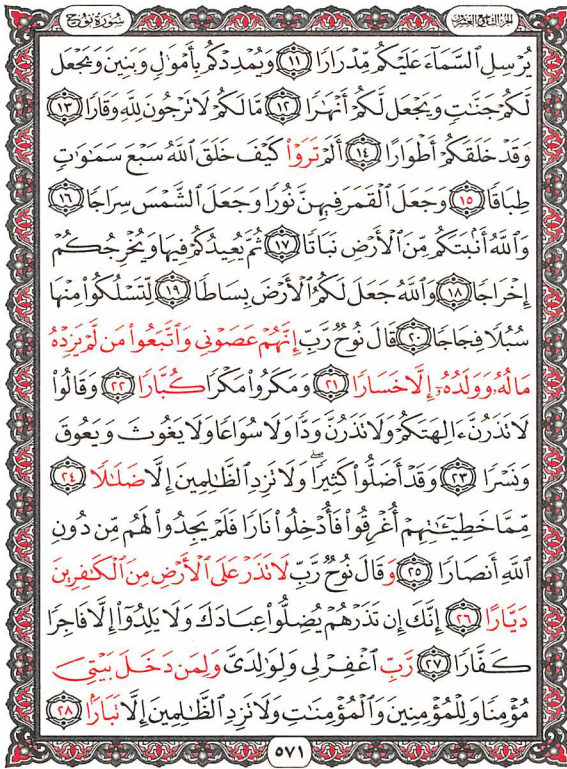 الجزء التاسع والعشرون سُورَةُ نُوح
يُرْسِلِ ٱلسَّمَآءَ عَلَيْكُم مِّدْرَارًا ١١ وَيُمْدِدْكُم بِأَمْوَٰلٍ وَبَنِينَ وَيَجْعَل
لَّكُمْ جَنَّـٰتٍ وَيَجْعَل لَّكُمْ أَنْهَـٰرًا ١٢ مَّا لَكُمْ لَا تَرْجُونَ لِلَّهِ وَقَارًا ١٣
وَقَدْ خَلَقَكُمْ أَطْوَارًا ١٤ أَلَمْ تَرَوْا۟ كَيْفَ خَلَقَ ٱللَّهُ سَبْعَ سَمَـٰوَٰتٍ
طِبَاقًا ١٥ وَجَعَلَ ٱلْقَمَرَ فِيهِنَّ نُورًا وَجَعَلَ ٱلشَّمْسَ سِرَاجًا ١٦
وَٱللَّهُ أَنۢبَتَكُم مِّنَ ٱلْأَرْضِ نَبَاتًا ١٧ ثُمَّ يُعِيدُكُمْ فِيهَا وَيُخْرِجُكُمْ
إِخْرَاجًا ١٨ وَٱللَّهُ جَعَلَ لَكُمُ ٱلْأَرْضَ بِسَاطًا ١٩ لِّتَسْلُكُوا۟ مِنْهَا
سُبُلًا فِجَاجًا ٢٠ قَالَ نُوحٌ رَّبِّ إِنَّهُمْ عَصَوْنِى وَٱتَّبَعُوا۟ مَن لَّمْ يَزِدْهُ
مَالُهُۥ وَوَلَدُهُۥٓ إِلَّا خَسَارًا ٢١ وَمَكَرُوا۟ مَكْرًا كُبَّارًا ٢٢ وَقَالُوا۟
لَا تَذَرُنَّ ءَالِهَتَكُمْ وَلَا تَذَرُنَّ وَدًّا وَلَا سُوَاعًا وَلَا يَغُوثَ وَيَعُوقَ
وَنَسْرًا ٢٣ وَقَدْ أَضَلُّوا۟ كَثِيرًا ۖ وَلَا تَزِدِ ٱلظَّـٰلِمِينَ إِلَّا ضَلَـٰلًا ٢٤
مِّمَّا خَطِيٓـَٔـٰتِهِمْ أُغْرِقُوا۟ فَأُدْخِلُوا۟ نَارًا فَلَمْ يَجِدُوا۟ لَهُم مِّن دُونِ
ٱللَّهِ أَنصَارًا ٢٥ وَقَالَ نُوحٌ رَّبِّ لَا تَذَرْ عَلَى ٱلْأَرْضِ مِنَ ٱلْكَـٰفِرِينَ
دَيَّارًا ٢٦ إِنَّكَ إِن تَذَرْهُمْ يُضِلُّوا۟ عِبَادَكَ وَلَا يَلِدُوٓا۟ إِلَّا فَاجِرًا
كَفَّارًا ٢٧ رَّبِّ ٱغْفِرْ لِى وَلِوَٰلِدَىَّ وَلِمَن دَخَلَ بَيْتِىَ
مُؤْمِنًا وَلِلْمُؤْمِنِينَ وَٱلْمُؤْمِنَـٰتِ وَلَا تَزِدِ ٱلظَّـٰلِمِينَ إِلَّا تَبَارًۢا ٢٨
٥٧١